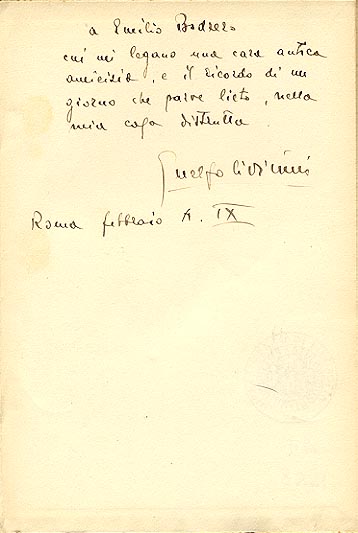 a Emilio Bodrero
cui mi legano una cara antica
amicizia, e il ricordo di un
giorno che parve lieto, nella
mia casa distrutta
Guelfo Civinini
Roma febbraio A. IX